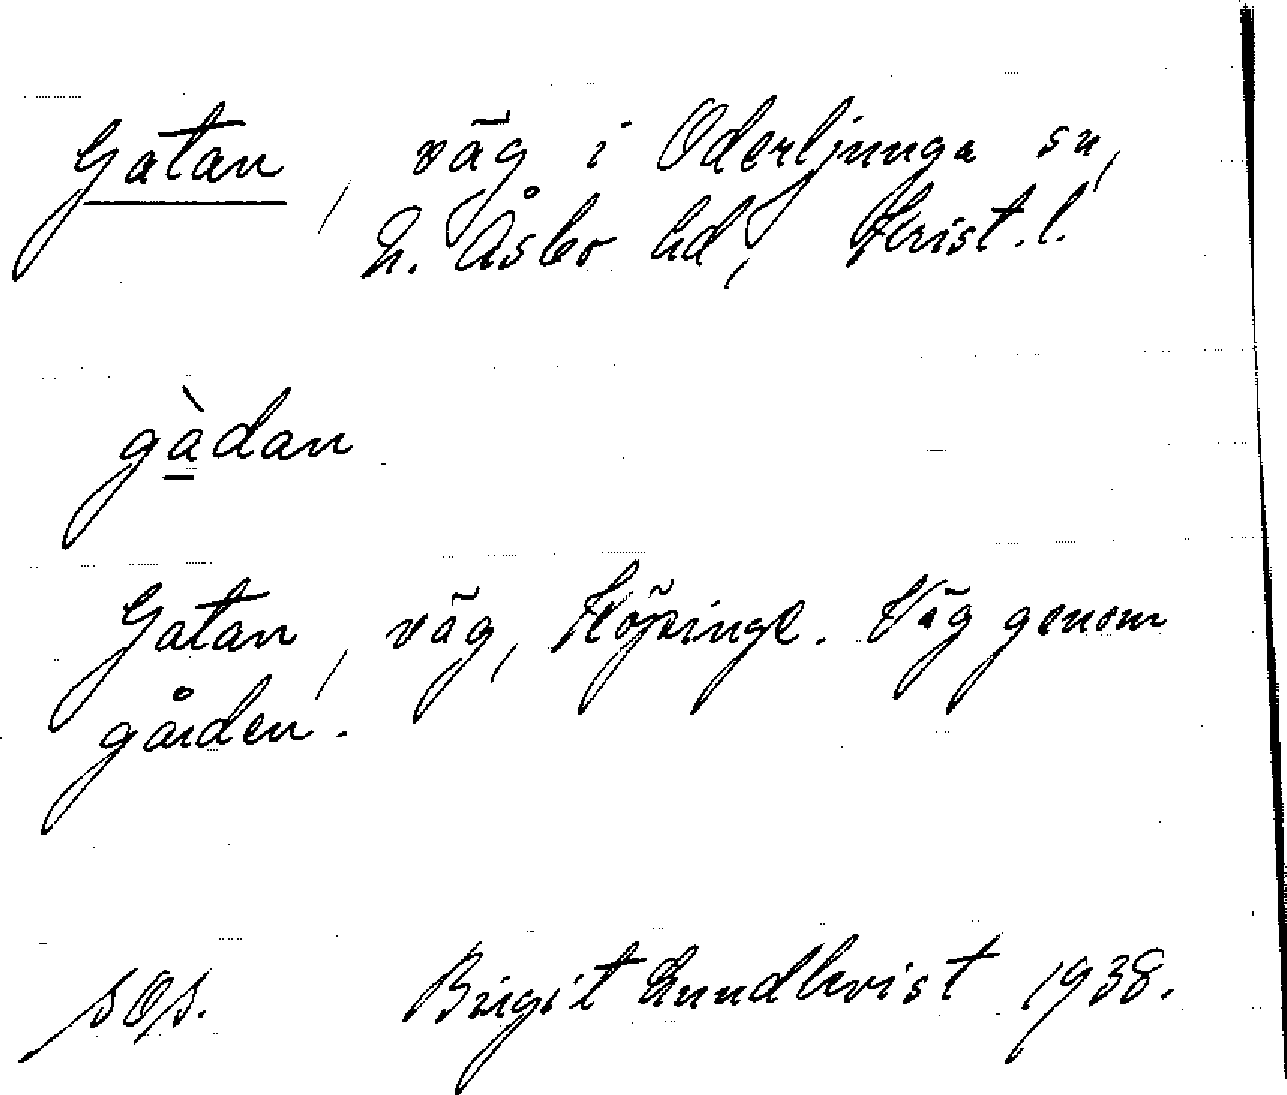 Gatan, väg i Oderljunga sn,
N. Åsbo hd, Krist. l.
gàdan
Gatan, väg, Köpinge. Väg genom
gården.
Birgit Lundkvist 1938.